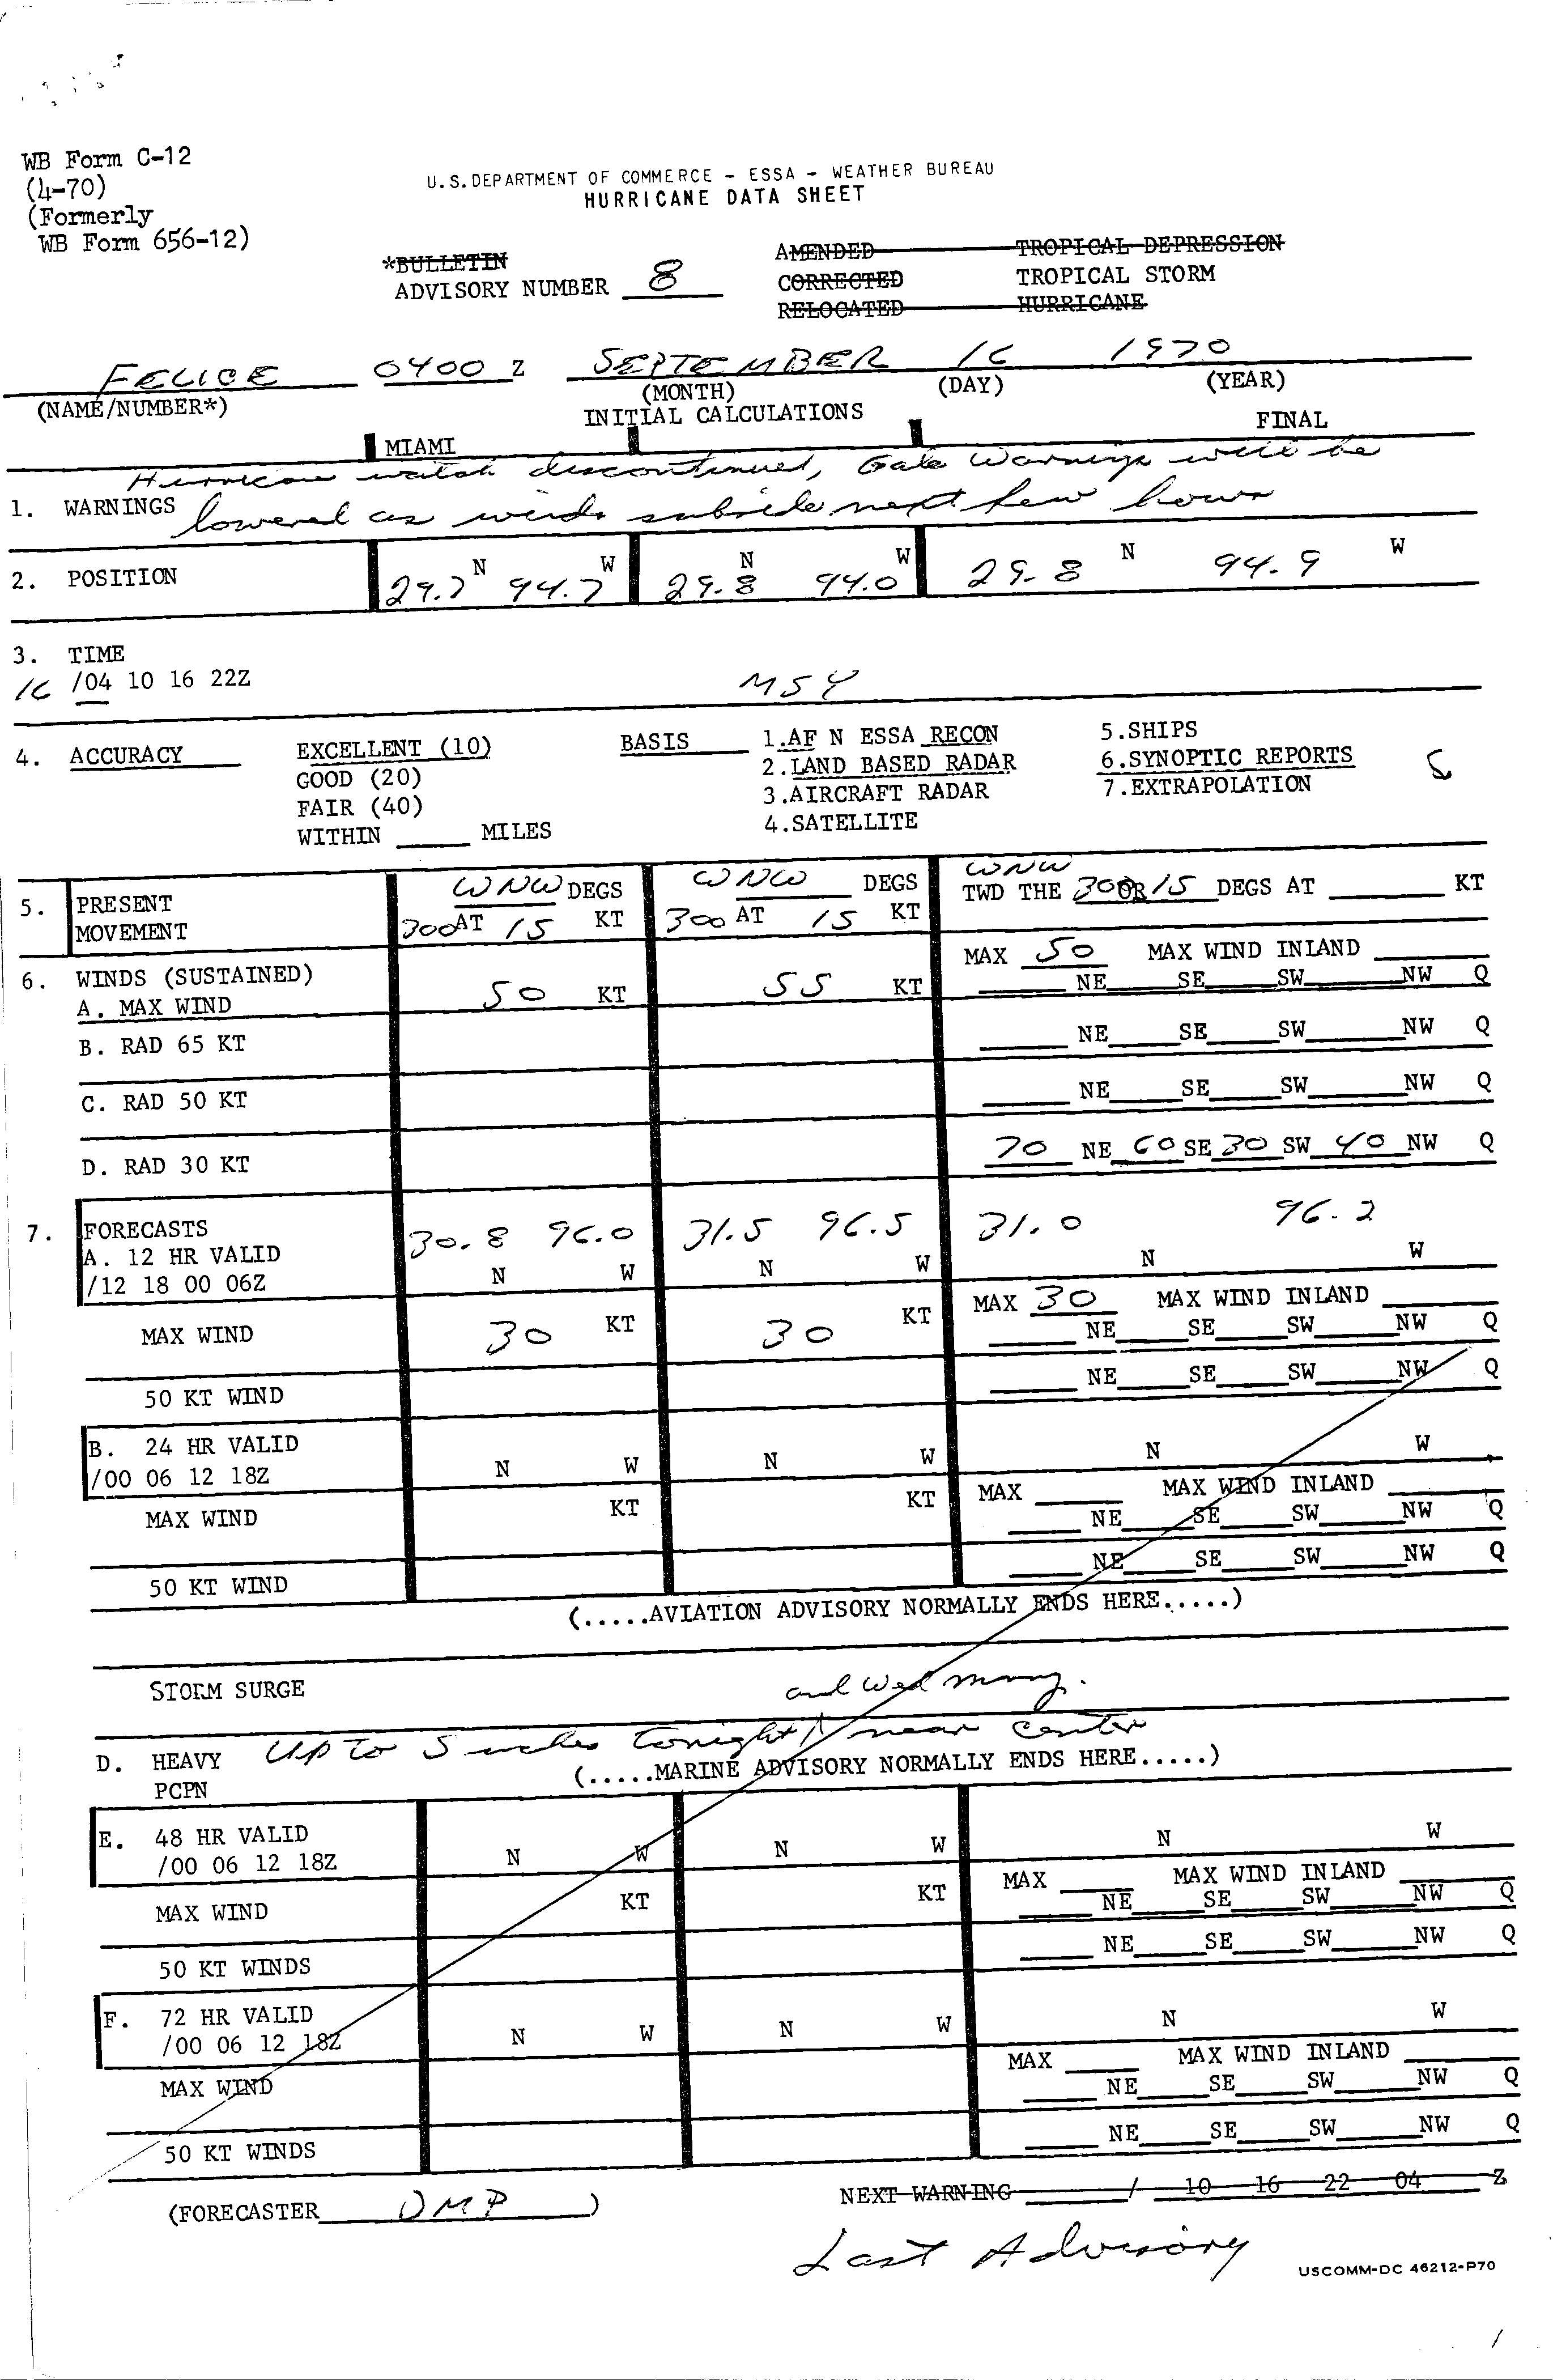 WB Form C-12
(4-70)
(Formerly
WB Form 656-12)
U.S. DEPARTMENT OF COMMERCE - ESSA - WEATHER BUREAU
HURRICANE DATA SHEET
*BULLETIN AMENDED TROPICAL DEPRESSION
ADVISORY NUMBER 8 CORRECTED TROPICAL STORM
RELOCATED HURRICANE
FELICE 0400 Z SEPTEMBER 16 1970
(NAME/NUMBER*) (MONTH) (DAY) (YEAR)
INITIAL CALCULATIONS FINAL
MIAMI
Hurricane watch discontinued, Gale Warnings will be
1. WARNINGS lowered as winds subside next few hours
2. POSITION 29.7 N 94.7 W 29.8 N 94.0 W 29.8 N 94.9 W
3. TIME
16 /04 10 16 22Z MSY
4. ACCURACY EXCELLENT (10) BASIS 1.AF N ESSA RECON 5.SHIPS
GOOD (20) 2.LAND BASED RADAR 6.SYNOPTIC REPORTS
FAIR (40) 3.AIRCRAFT RADAR 7.EXTRAPOLATION
WITHIN MILES 4.SATELLITE
5. PRESENT WNW DEGS WNW DEGS WNW TWD THE 300 OR 15 DEGS AT KT
MOVEMENT 300 AT 15 KT 300 AT 15 KT
6. WINDS (SUSTAINED) MAX 50 MAX WIND INLAND
A. MAX WIND 50 KT 55 KT NE SE SW NW Q
B. RAD 65 KT NE SE SW NW Q
C. RAD 50 KT NE SE SW NW Q
D. RAD 30 KT 70 NE 60 SE 30 SW 40 NW Q
7. FORECASTS 30.8 96.0 31.5 96.5 31.0 96.2
A. 12 HR VALID N W N W N W
/12 18 00 06Z
MAX 30 MAX WIND INLAND
MAX WIND 30 KT 30 KT NE SE SW NW Q
50 KT WIND NE SE SW NW Q
B. 24 HR VALID N W N W N W
/00 06 12 18Z
MAX MAX WIND INLAND
MAX WIND KT KT NE SE SW NW Q
50 KT WIND NE SE SW NW Q
(.....AVIATION ADVISORY NORMALLY ENDS HERE.....)
STORM SURGE
and Wed morng.
D. HEAVY Up to 5 inches tonight near center
PCPN (.....MARINE ADVISORY NORMALLY ENDS HERE.....)
E. 48 HR VALID N W N W N W
/00 06 12 18Z
MAX MAX WIND INLAND
MAX WIND KT KT NE SE SW NW Q
50 KT WINDS NE SE SW NW Q
F. 72 HR VALID N W N W N W
/00 06 12 18Z
MAX MAX WIND INLAND
MAX WIND NE SE SW NW Q
50 KT WINDS NE SE SW NW Q
(FORECASTER OMP) NEXT WARNING / 10 16 22 04 Z
Last Advisory
USCOMM-DC 46212-P70